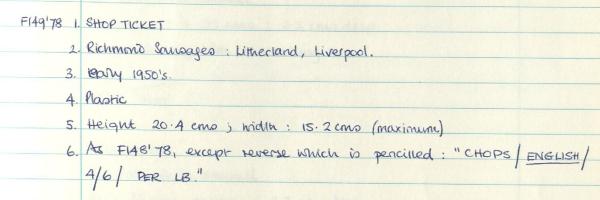 F149'78 1. SHOP TICKET
2. Richmond Sausages : Litherland, Liverpool.
3. early 1950's.
4. Plastic
5. Height 20.4 cms ; width : 15.2 cms (maximum)
6. As F148'78, except reverse which is pencilled : "CHOPS / ENGLISH /
4/6 / PER LB."